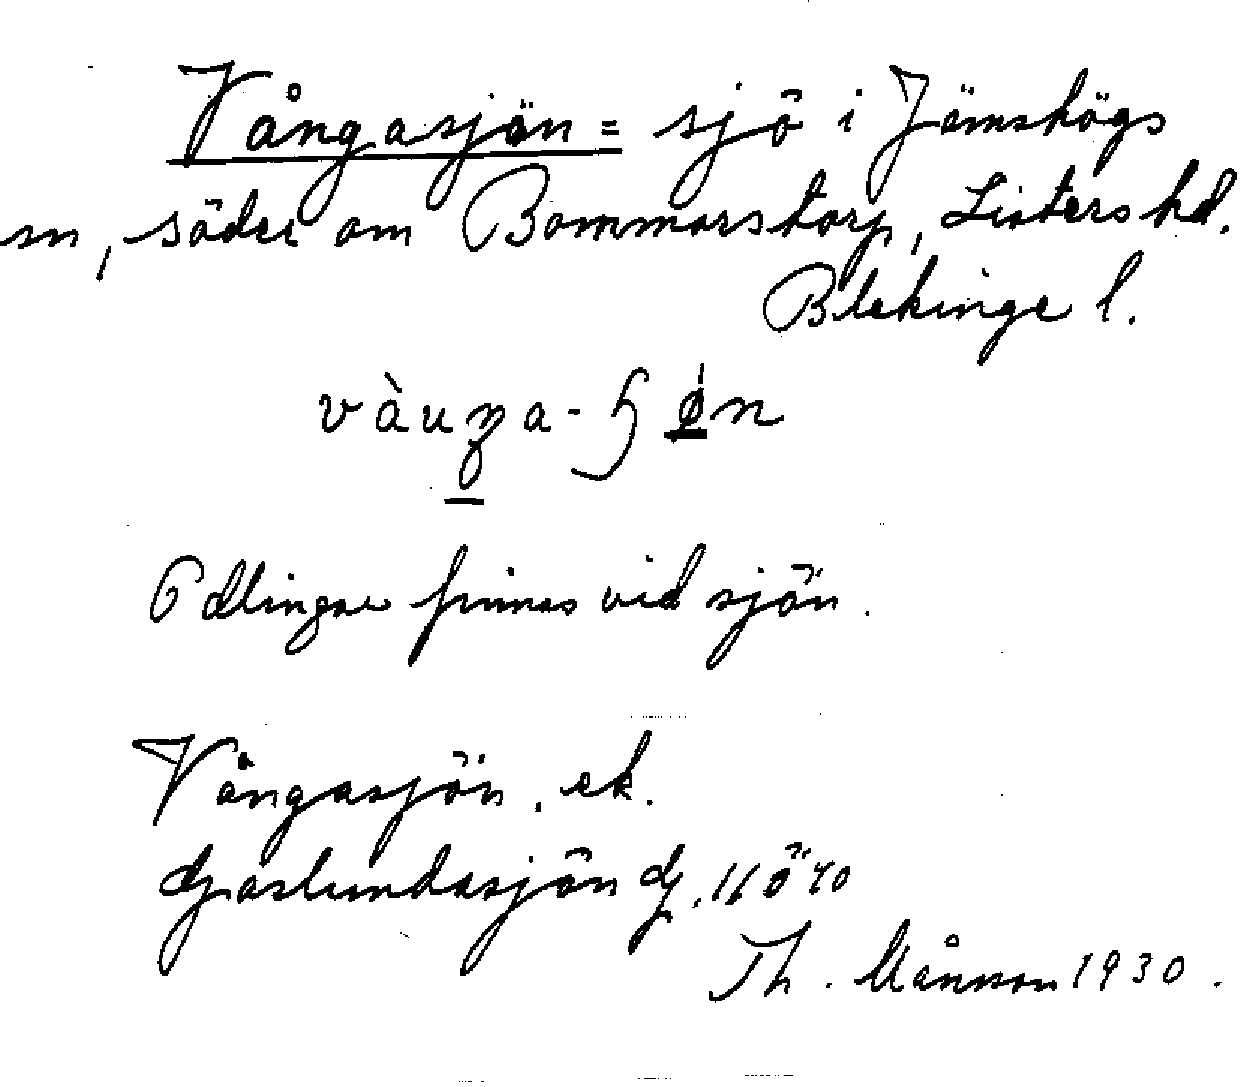 Vångasjön = sjö i Jämshögs
sn, söder om Bommarstorp, Listers hd.
Blekinge l.
vàuŋa-ɧø̇n
Odlingar finnas vid sjön.
Vångasjön, ek.
Gaslundasjön G. 1640
Th. Månsson 1930.